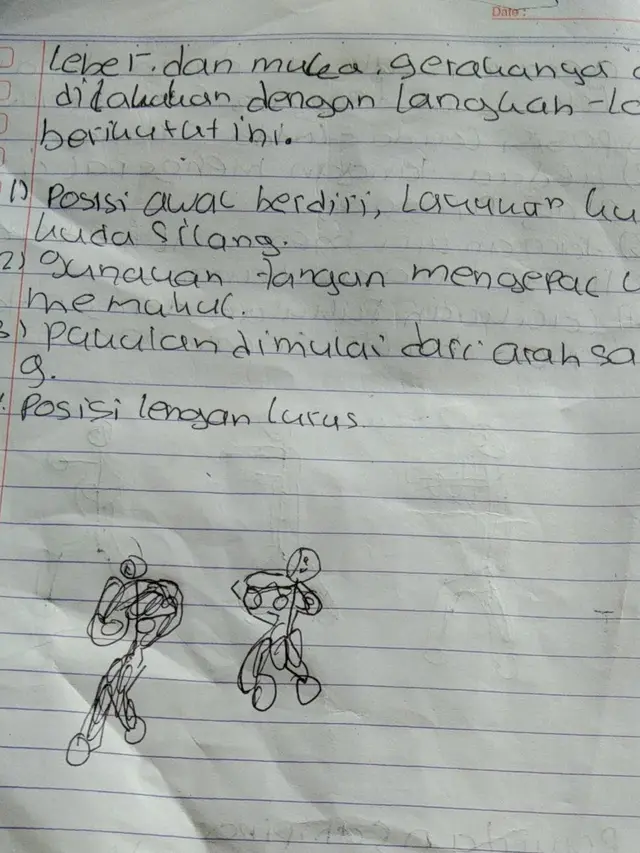 Date:
leher. dan muka. gerakanya
dilakukan dengan langkah-
berikut ut ini.
1) Posisi awal berdiri, Lakukan ku
kuda silang.
2) gunakan tangan mengepal
memukul.
3) pukulan dimulai dari arah sa
g.
Posisi lengan lurus